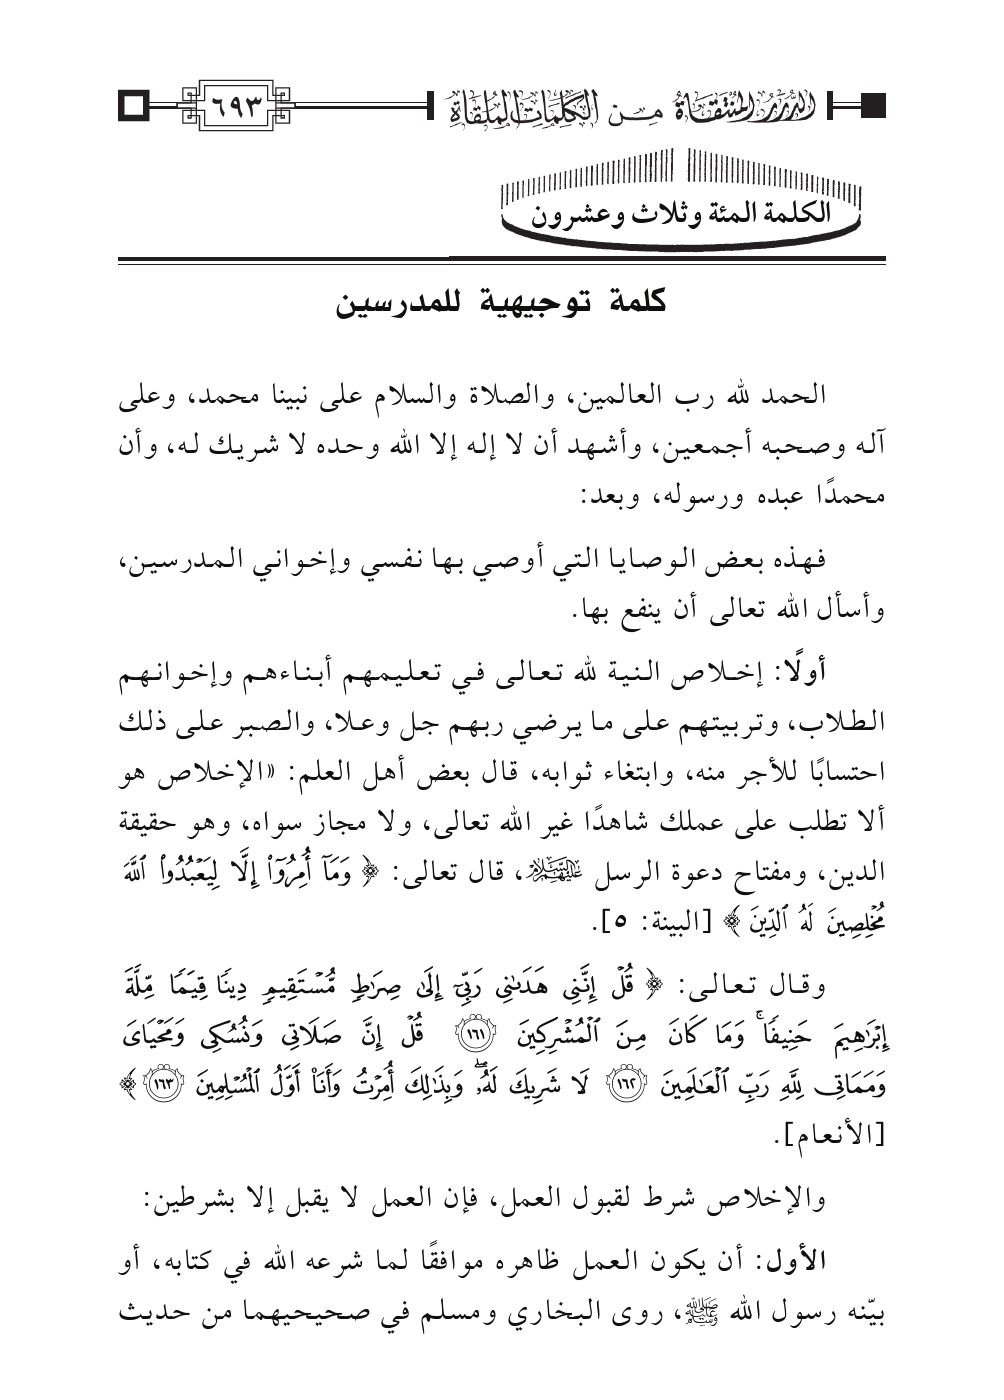 الدرر المنتقاة من الكلمات الملقاة
٦٩٣
الكلمة المئة وثلاث وعشرون
كلمة توجيهية للمدرسين
الحمد لله رب العالمين، والصلاة والسلام على نبينا محمد، وعلى
آله وصحبه أجمعين، وأشهد أن لا إله إلا الله وحده لا شريك له، وأن
محمدًا عبده ورسوله، وبعد:
فهذه بعض الوصايا التي أوصي بها نفسي وإخواني المدرسين،
وأسأل الله تعالى أن ينفع بها.
أولًا: إخلاص النية لله تعالى في تعليمهم أبناءهم وإخوانهم
الطلاب، وتربيتهم على ما يرضي ربهم جل وعلا، والصبر على ذلك
احتسابًا للأجر منه، وابتغاء ثوابه، قال بعض أهل العلم: «الإخلاص هو
ألا تطلب على عملك شاهدًا غير الله تعالى، ولا مجاز سواه، وهو حقيقة
الدين، ومفتاح دعوة الرسل عليهم السلام، قال تعالى: ﴿ وَمَآ أُمِرُوٓا۟ إِلَّا لِيَعْبُدُوا۟ ٱللَّهَ
مُخْلِصِينَ لَهُ ٱلدِّينَ ﴾ [البينة: ٥].
وقال تعالى: ﴿ قُلْ إِنَّنِى هَدَىٰنِى رَبِّىٓ إِلَىٰ صِرَٰطٍ مُّسْتَقِيمٍ دِينًا قِيَمًا مِّلَّةَ
إِبْرَٰهِيمَ حَنِيفًا ۚ وَمَا كَانَ مِنَ ٱلْمُشْرِكِينَ ١٦١ قُلْ إِنَّ صَلَاتِى وَنُسُكِى وَمَحْيَاىَ
وَمَمَاتِى لِلَّهِ رَبِّ ٱلْعَٰلَمِينَ ١٦٢ لَا شَرِيكَ لَهُۥ ۖ وَبِذَٰلِكَ أُمِرْتُ وَأَنَا۠ أَوَّلُ ٱلْمُسْلِمِينَ ١٦٣ ﴾
[الأنعام].
والإخلاص شرط لقبول العمل، فإن العمل لا يقبل إلا بشرطين:
الأول: أن يكون العمل ظاهره موافقًا لما شرعه الله في كتابه، أو
بيّنه رسول الله ﷺ، روى البخاري ومسلم في صحيحيهما من حديث